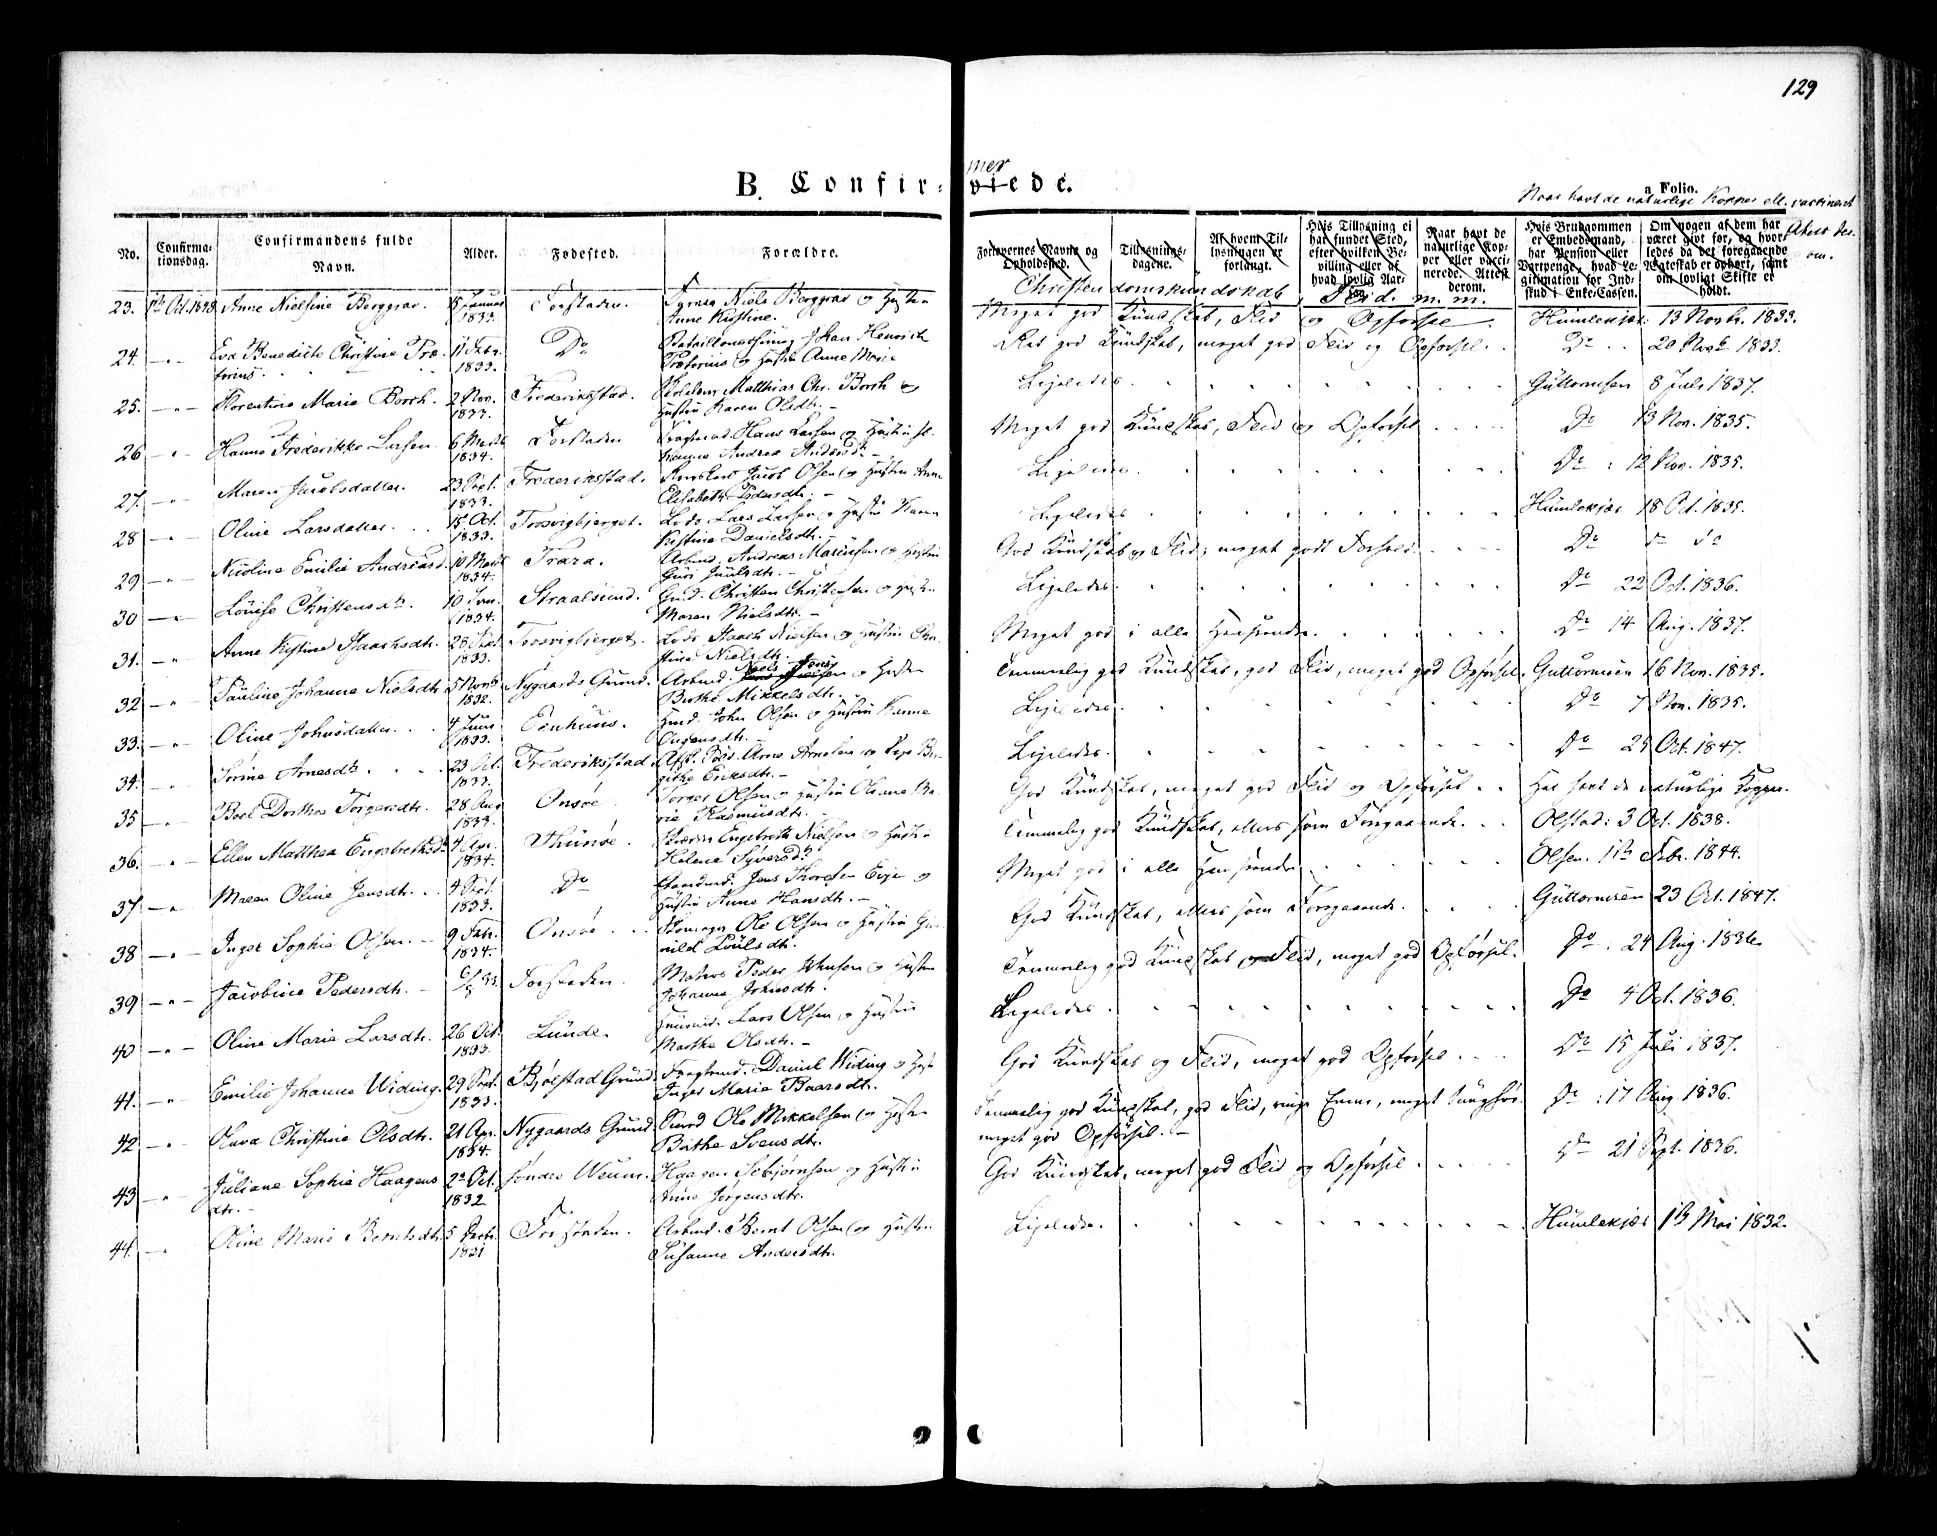 129
B. Confir-
mer
viede.
a Folio.
Naar havt de naturlige Kopper ell. vaccineret
No.
Confirma-
tionsdag.
Confirmandens fulde
Navn.
Alder.
Fødested.
Forældre.
Forlovernes Navne og
Opholdssted.
Tillysnings-
dagene.
Af hvem Til-
lysningen er
forlangt.
Hvis Tillysning ei
har fundet Sted,
efter hvilken Be-
villing eller af
hvad lovlig Aar-
sag.
Naar havt de
naturlige Kop-
per eller vacci-
nerede. Attest
derom.
Hvis Brudgommen
er Embedsmand,
har Pension eller
Vartpenge, hvad Le-
gitimation for Ind-
skud i Enke-Cassen.
Om nogen af dem har
været givt før, og hvor-
ledes da det foregaaende
Ægteskab er ophørt, samt
om lovligt Skifte er
holdt.
om.
Christendomskundskab
Flid. m. m.
23. Oct. 1848 Anne Nielsine Berggrav 15 Januar 1833. Forstaden. Niels Berggrav og Hustru
Anne Kirstine.
Meget god Kundskab, Flid og Opførsel. Humlekjær 13 Novbr. 1833.
24. -"- Eva Benedicte Christine Præ-
torius. 11 Febr. 1833. Do Johan Henrich
Prætorius og Hustru Anne Marie
god Kundskab, meget god Flid og Opførsel. Do 20 Novbr 1833.
25. -"- Florentine Marie Borch. 2 Nov. 1833. Frederikstad. Matthias Chr. Borch og
Hustru Karen Olsdtr. -
Ligeledes. Guttormsen 8 Juli 1837.
26 -"- Hanne Frederikke Larsen 6 Marts 1834. Forstaden Hans Larsen og Hustru
Andrea Andersdr. -
Meget god Kundskab, Flid og Opførsel Do 13 Nov. 1835.
27. -"- Maren Jacobsdatter. 23 Sept. 1833. Frederikstad. Jacob Olsen og Hustru Anne
Elisabeth Pedersdtr. -
Ligeledes. Do 12 Nov. 1835.
28 -"- Oline Larsdatter. 15 Oct. 1833. Trosvigbjerget. Lods Lars Larsen og Hustru Karen
Kirstine Danielsdtr.
Ligeledes Humlekjær 18 Oct. 1835.
29 -"- Nicoline Emilie Andreasd. 10 Marts 1834. Trara. Arbmd. Andreas Mariusen og Hustru
Guri Juulsdtr. -
God Kundskab og Flid; meget godt Forhold. Do do do
30 -"- Louise Christensdtr. 10 Jan. 1834. Straalsund. Christen Christensen og Hustru
Maren Nielsdtr. -
Ligeledes. Do 22 Oct. 1836.
31. -"- Anne Kirstine Isaachsdtr. 28 1833. Trosvigbjerget. Lods Isaach Nielsen og Hustru
Nielsdtr.
Meget god i alle Henseender. Do 14 Aug. 1837.
32 -"- Pauline Johanne Nielsdtr 5 Novb 1832. Nygaards Grund. Arbmd. Niels og Hustru
Berthe Mikkelsdtr.
Temmelig god Kundskab, god Flid, meget god Opførsel. Guttormsen 16 Nov. 1835.
33. -"- Oline Johnsdatter. 4 1833. Enhuus. John Olsen og Hustru Hanne
Ligeledes. Do 7 Nov. 1835.
34. -"- Sørine Arnesdtr. 23 Oct. 1833. Frederikstad Arne Arnesen og Be-
githe Eriksdtr. -
Ligeledes. Do 25 Oct. 1847.
35 -"- Boel Dorthea Torgersdtr. 28 Aug 1833. Onsøe. Torger Olsen og Hustru Oleanne Ma-
rie Rasmusdtr.
God Kundskab, meget god Flid og Opførsel Har havt de naturlige Kopper.
36. -"- Ellen Matthea Engebrethsdtr 4 Apr. 1834. Thunøe. Engebreth Nielsen og Hustru
Helene Syversdtr
Temmelig god Kundskab, ellers som Foregaaende. Olstad: 3 Oct. 1838.
37 -"- Maren Oline Jensdtr. 4 Sept. 1833. Do Jens Thoresen Evje og
Hustru Anne Hansdtr. -
Meget god i alle Henseender Olsen. Febr. 1844.
38 -"- Inger Sophie Olsen. 9 Febr. 1834. Onsøe Ole Olsen og Hustru Gu-
nild
God Kundskab, ellers som Foregaaende. Guttormsen 23 Oct. 1847.
39 -"- Jacobine Pedersdtr. Forstaden Matros Peder Johnsen og Hustru
Johanne Johnsdtr.
Temmelig god Kundskab og Flid, meget god Opførsel. Do 24 Aug. 1836
40 -"- Oline Marie Larsdtr. 26 Oct. 1833. Lunde. Lars Olsen og Hustru
Marthe Olsdtr. -
Ligeledes. Do 4 Oct. 1836.
41. -"- Emilie Johanne Widing. 29 Sept. 1833. Bjølstad Grund. Daniel Widing og Hustru
Inger Marie Baarsdtr.
God Kundskab og Flid, meget god Opførsel Do 15 Juli 1837.
42 -"- Olava Christine Olsdtr. 21 Apr. 1834. Nygaards Grund Ole Mikkelsen og Hustru
Birthe Svensdtr.
Temmelig god Kundskab, god Flid, ringe Evne, meget
meget god Opførsel. - Do 17 Aug. 1836.
43 -"- Juliane Sophie Haagens
dtr. - 2 Oct. 1832 Søndre Weum. Haagen Isebjørnsen og Hustru
Anne Jørgensdtr.
God Kundskab, meget god Flid og Opførsel. Do 21 Sept. 1836.
44. -"- Oline Marie Berntsdtr. 5 1831 Forstaden. Arbmd. Bernt Olsen og Hustru
Susanne Andersdtr.
Ligeledes. Humlekjær Mai 1832.